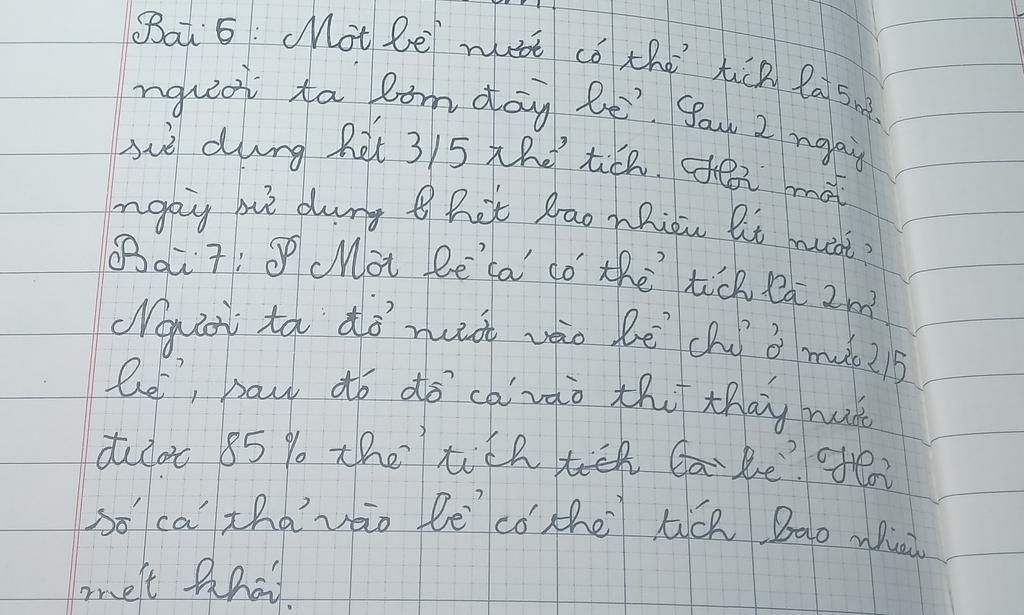 Bài 6: Một bể nước có thể tích là 5m³.
người ta bơm đầy bể. Sau 2 ngày
sử dụng hết 3/5 thể tích. Hỏi mỗi
ngày sử dụng hết bao nhiêu lít nước?
Bài 7: Một bể cá có thể tích là 2m³.
Người ta đổ nước vào bể chỉ ở mức 2/5
bể, sau đó đổ cá vào thì thấy nước
được 85% thể tích tích bể. Hỏi
số cá thả vào bể có thể tích bao nhiêu
mét khối.